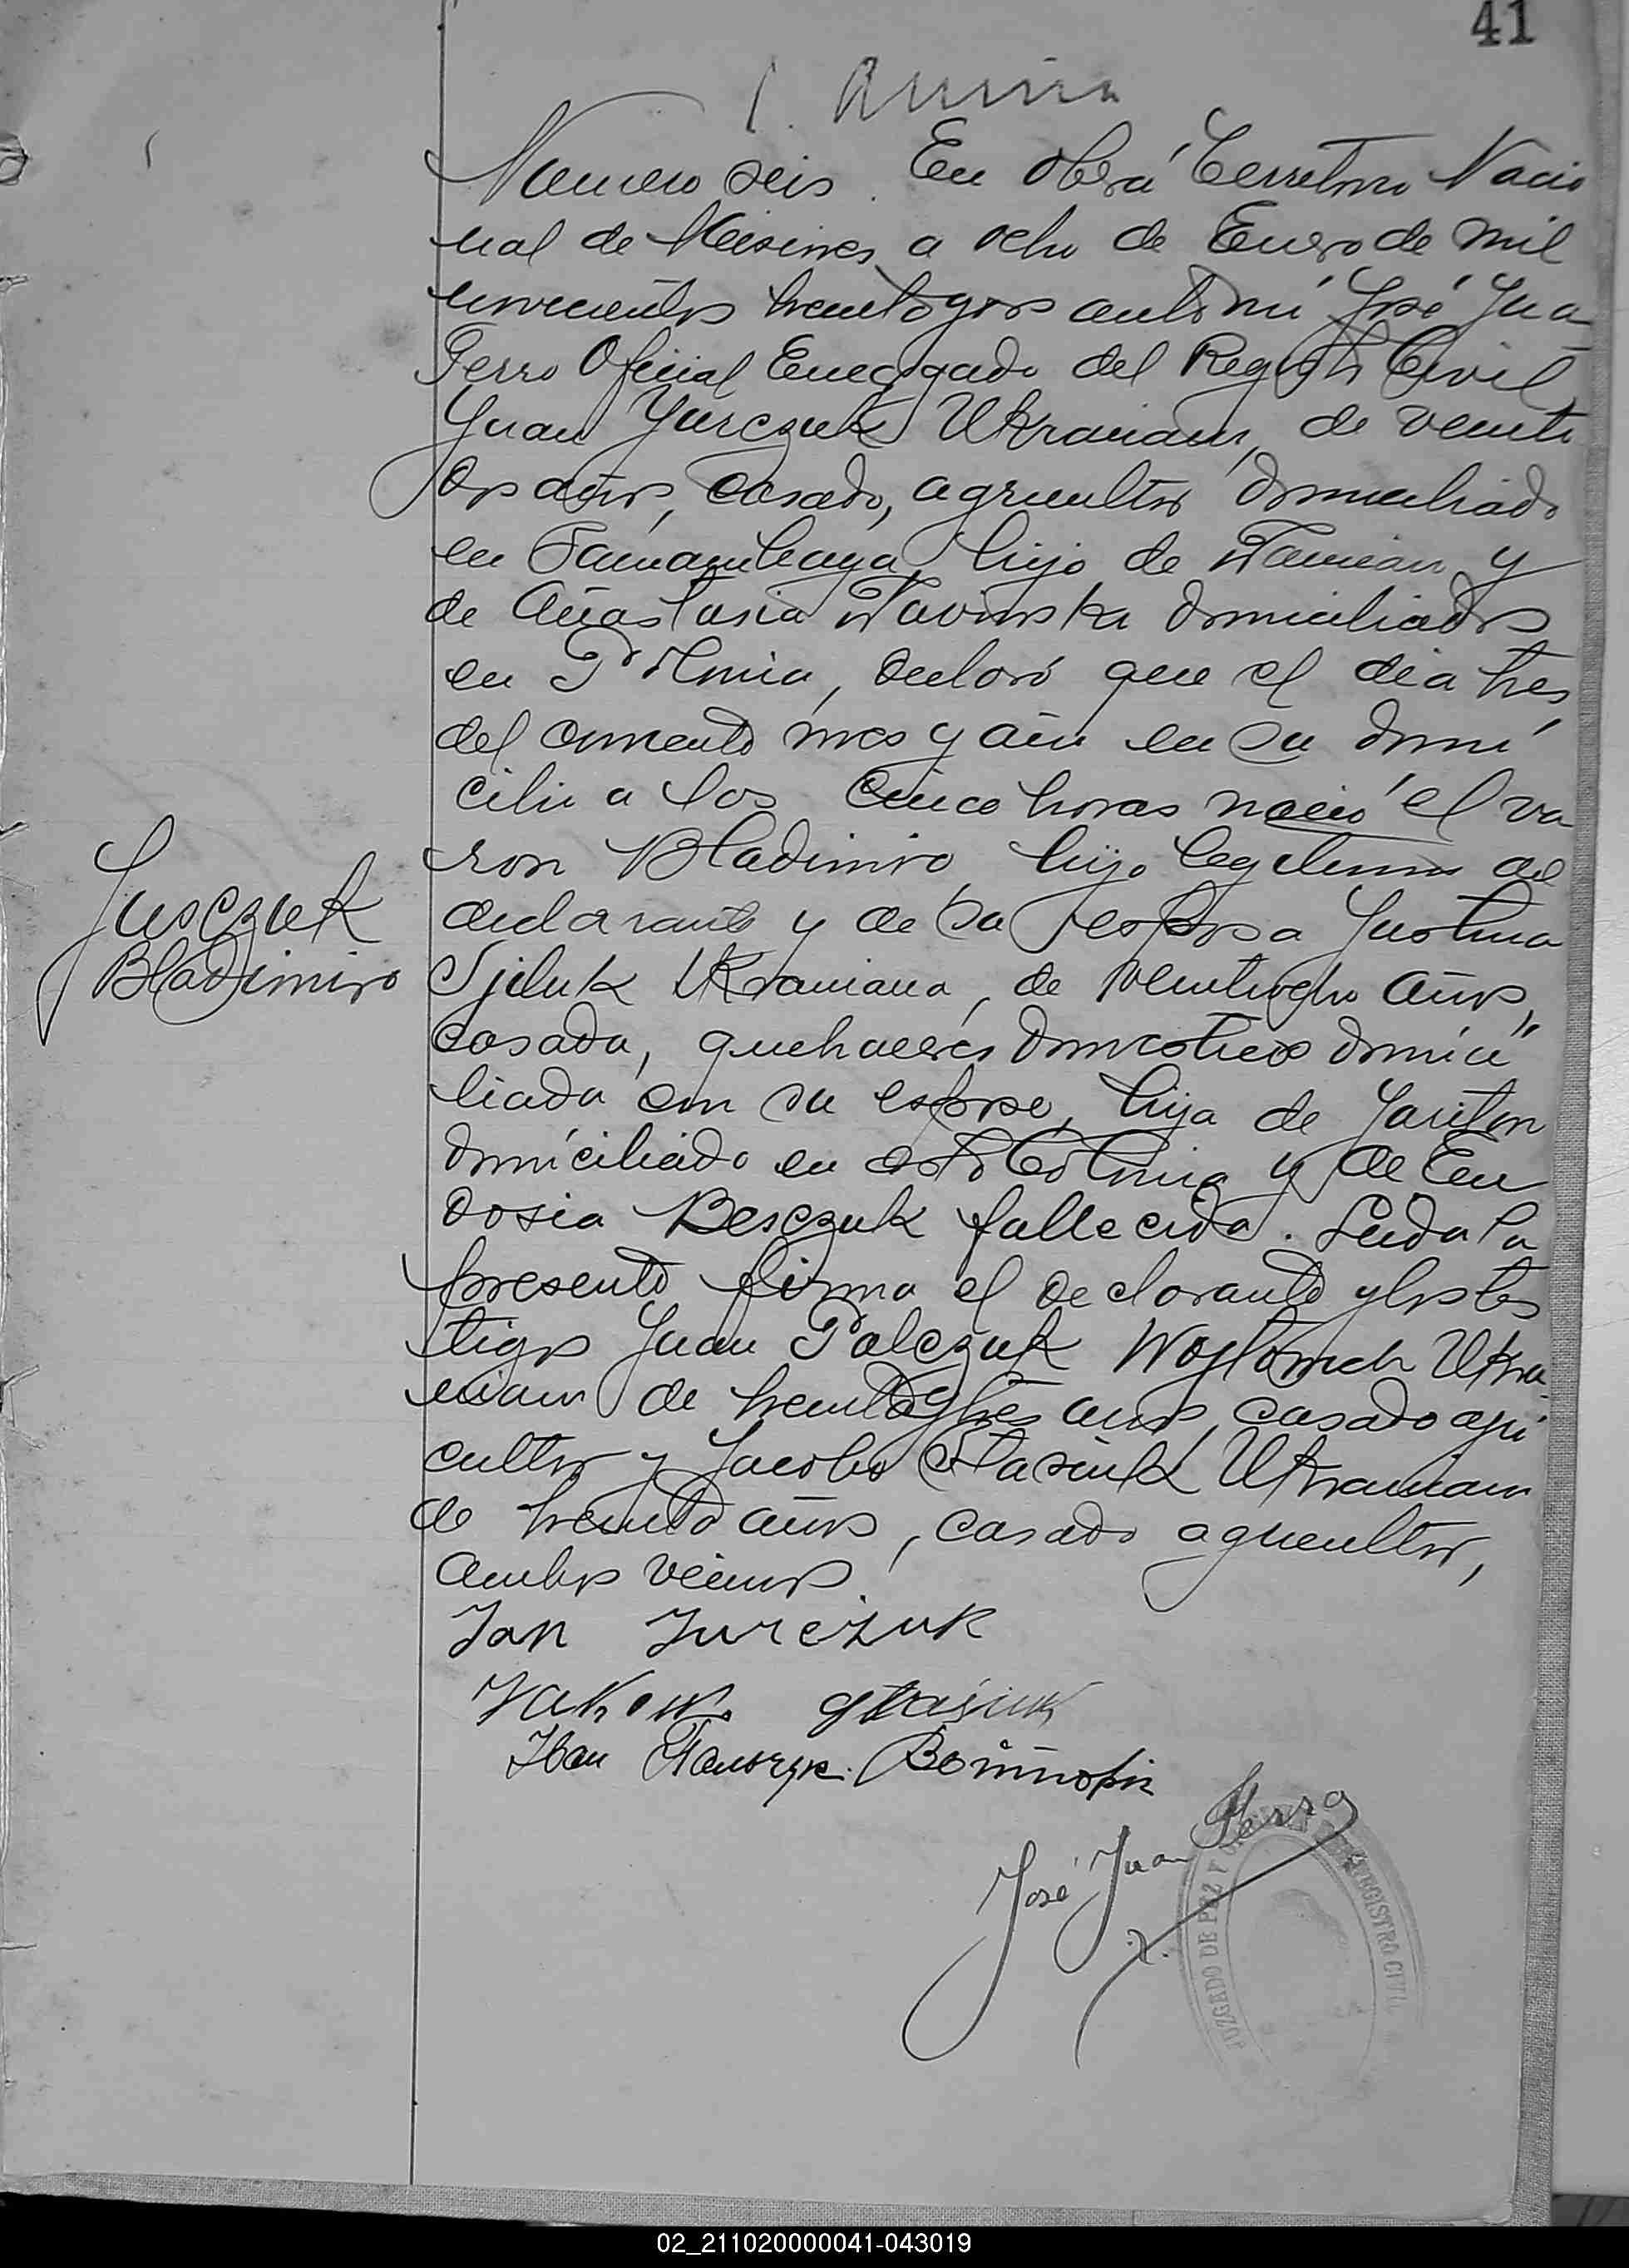 41
Numero seis. En Oberá Territorio Nacio
nal de Misiones a ocho de Enero de mil
novecientos treinta y dos ante mi José Jua
Ferro Oficial Encargado del Registro Civil,
Juan Yurczuk Ukraniano, de veinti
dos años, casado, agricultor domiciliado
en hijo de Damian y
de Anastasia domiciliados
en Polonia, declaró que el dia tres
del corriente mes y año en su domi
cilio a las cinco horas nació el va
ron Bladimiro hijo legitimo del
Jusczuk
Bladimiro
declarante y de su esposa Justina
Ukraniana, de veintiocho años,
casada, quehaceres domesticos domici
liada con su esposo, hija de
domiciliado en esta Colonia y de Eu
dosia Besczuk fallecida. Leida la
presente firma el declarante y los tes
tigos Juan Palczuk Ukra
niano de treinta y tres años, casado agri
cultor y Jacobo Stasiuk Ukraniano
de treinta años, casado agricultor,
ambos vecinos.
Jan Jurczuk
Stasiuk
José Juan Ferro
JUZGADO DE PAZ Y REGISTRO CIVIL
02_211020000041-043019